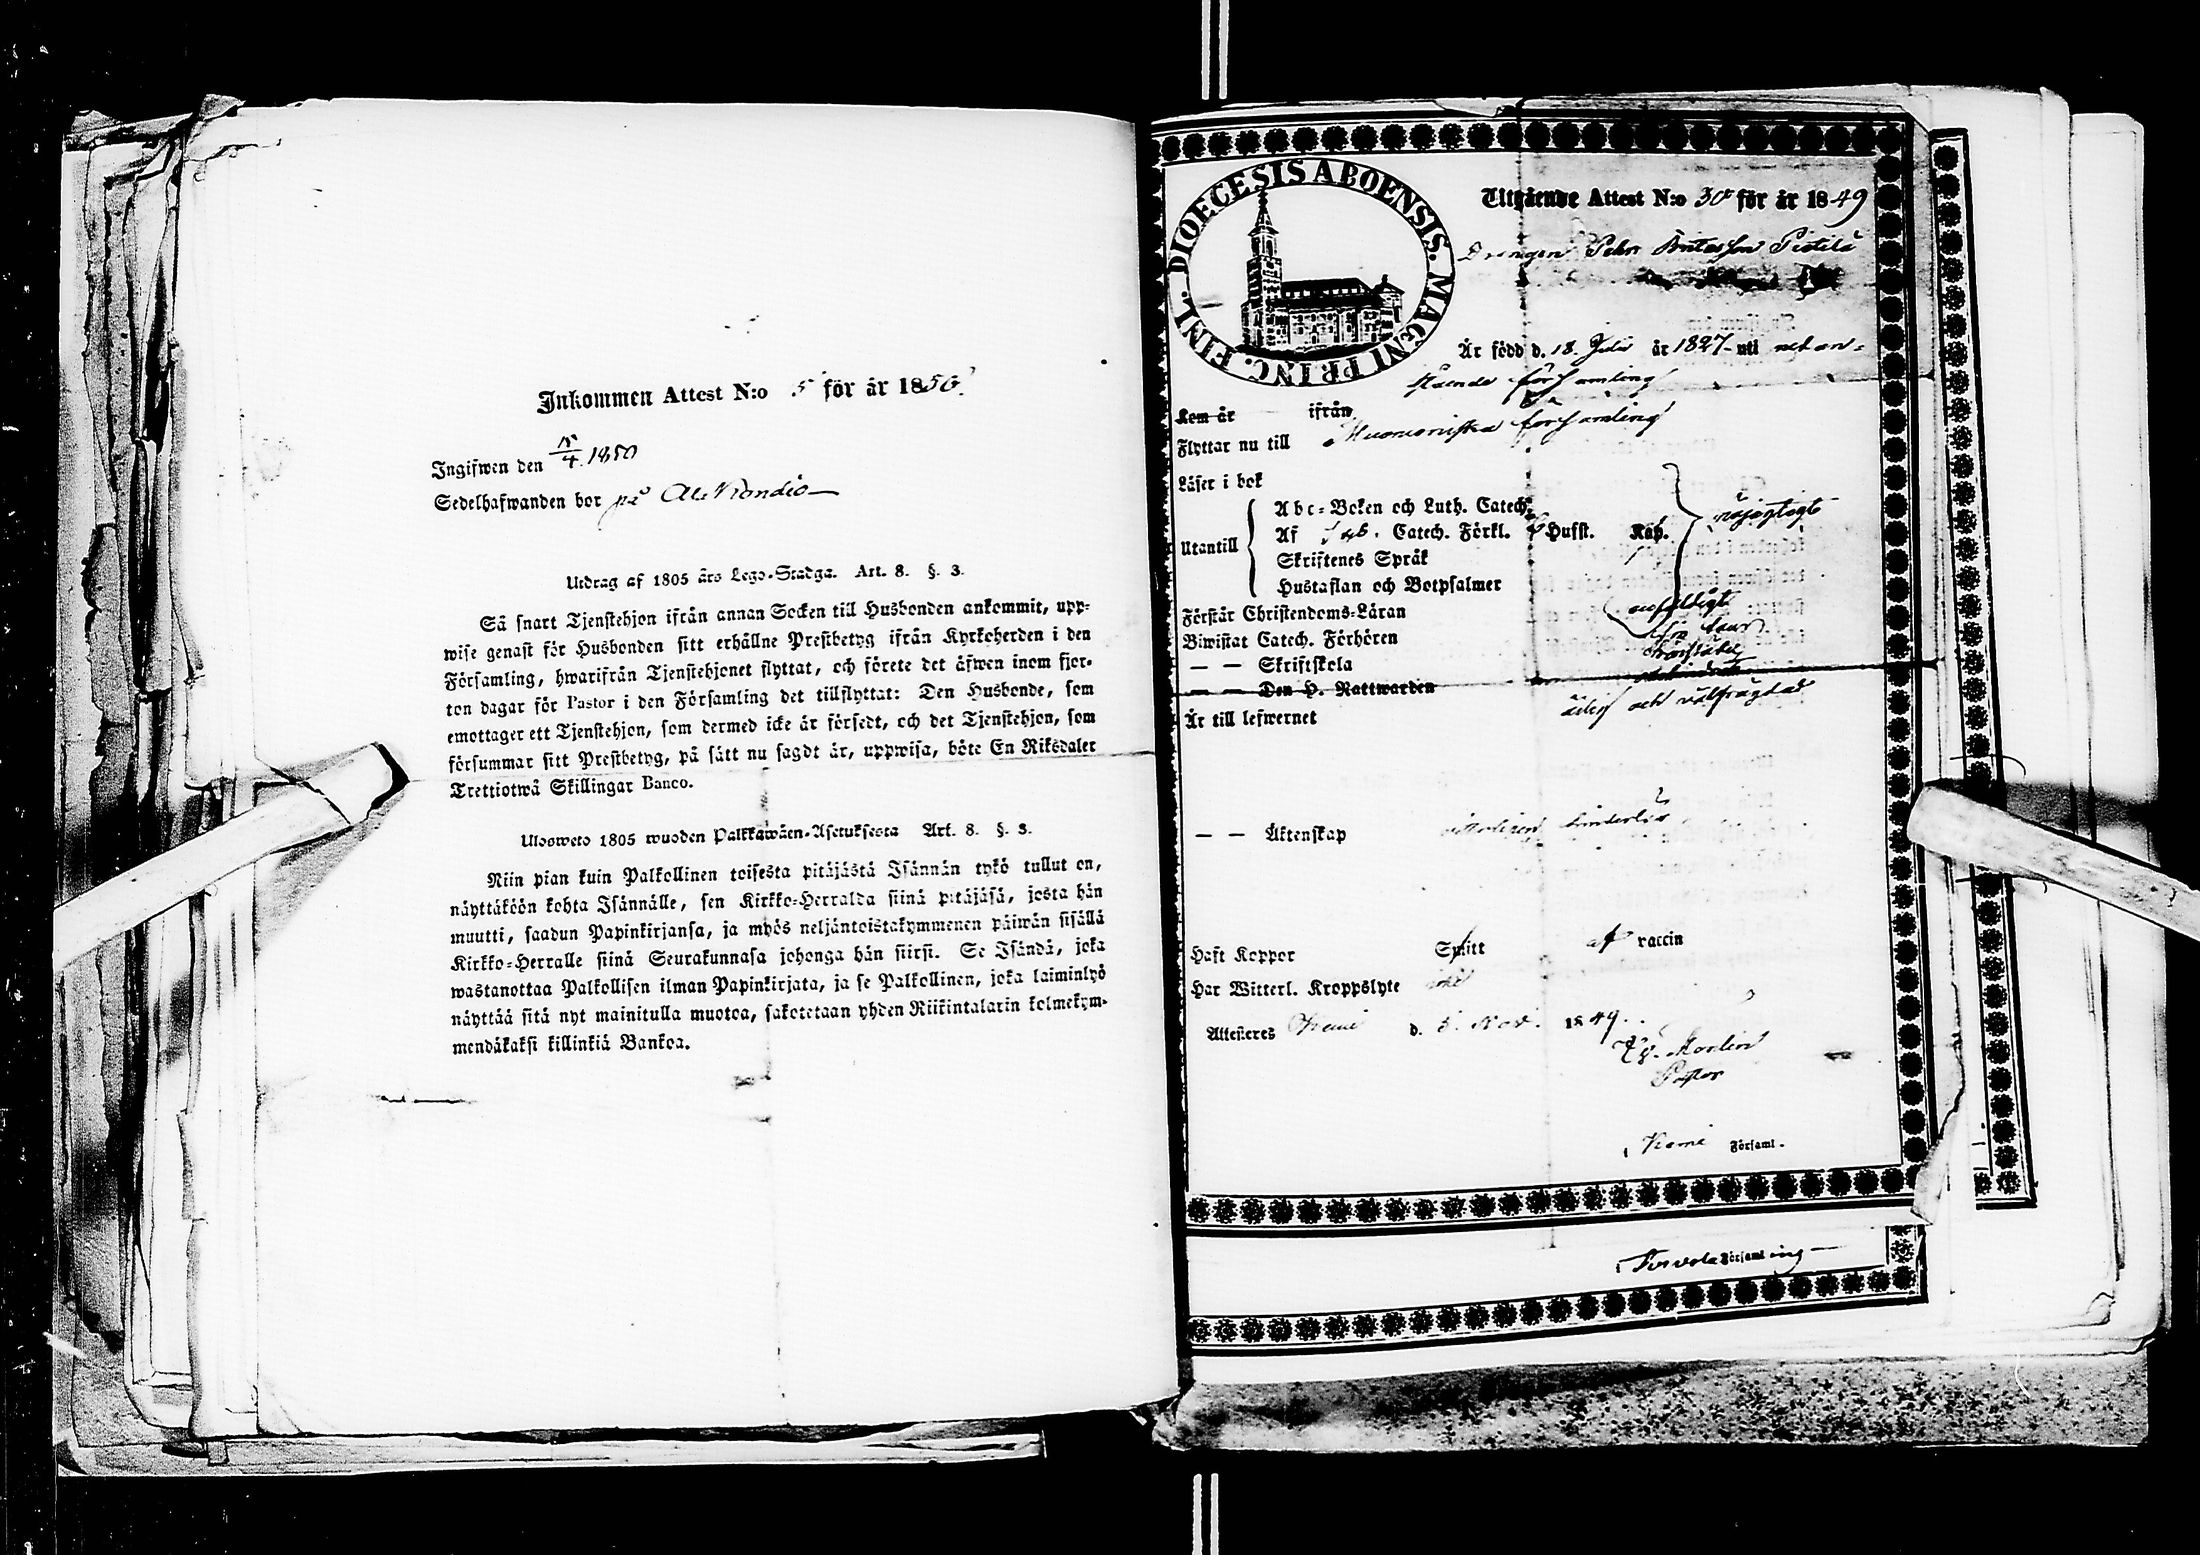 Inkommen Attest N:o 5 för år 1850.
Ingifwen den 15/4 1850
Sedelhafwanden bor på
Utdrag af 1805 års Lego-Stadga. Art. 8. §. 3.
Så snart Tjenstehjon ifrån annan Socken till Husbonden ankommit, upp-
wise genast för Husbonden sitt erhållne Prestbetyg ifrån Kyrkoherden i den
Församling, hwarifrån Tjenstehjonet flyttat, och förete det äfwen inom fjor-
ton dagar för Pastor i den Församling det tillflyttat: Den Husbonde, som
emottager ett Tjenstehjon, som dermed icke är försedt, och det Tjenstehjon, som
försummar sitt Prestbetyg, på sätt nu sagdt är, uppwisa, böte En Riksdaler
Trettiotwå Skillingar Banco.
Ulosweto 1805 wuoden Palkkawäen-Asetuksesta Art. 8. §. 3.
Niin pian kuin Palkollinen toisesta pitäjästä Isännän tykö tullut on,
näyttäköön kohta Isännälle, sen Kirkko-Herralda siinä pitäjäsä, josta hän
muutti, saadun Papinkirjansa, ja myös neljäntoistakymmenen päiwän sisällä
Kirkko-Herralle siinä Seurakunnasa johonga hän siirsi. Se Isändä, joka
wastanottaa Palkollisen ilman Papinkirjata, ja se Palkollinen, joka laiminlyö
näyttää sitä nyt mainitulla muotoa, sakotetaan yhden Riikintalarin kolmekym-
mendäkaksi killinkiä Bankoa.
DIOECESIS ABOENSIS. MAGNI PRINC. FINL.
Utgående Attest N:o 30 för år 1849
Drengen Pehr Piotila
Är född d. 18. Julii år 1827 uti net an-
stående församling
Kom år ifrån
Flyttar nu till Muonionisko församling
Läser i bok
Abc-Boken och Luth. Catech.
Utantill Af Catech. Förkl. Husst. Kap. nöjagtigt
Skriftenes Språk
Hustaflan och Botpsalmer
Förstår Christendoms-Läran enfaldigt
Biwistat Catech. Förhören
— — Skriftskola
— — Den H. Nattwarden
Är till lefwernet och välfrägdad
— — Äktenskap hinderlös
Haft Koppor Smitt af vaccin
Har Witterl. Kroppslyte
Attesteres Kemi d. 5. Nov. 1849.
Pastor
Kemi Församl.
Tervola Församling